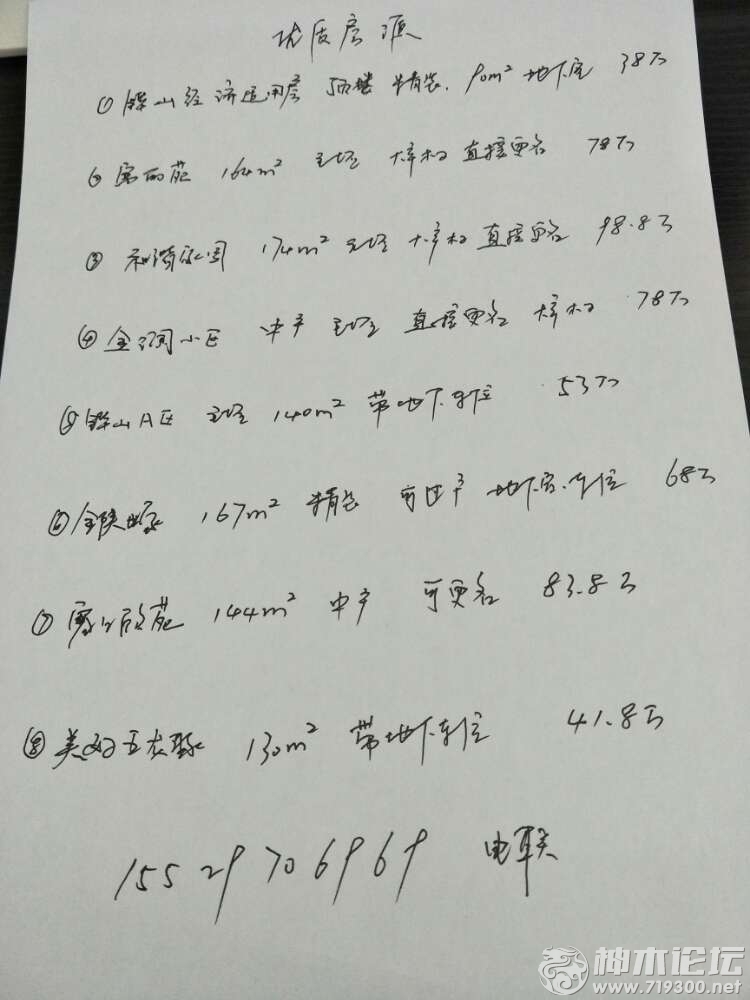 优质房源
① 铧山经济适用房 顶楼 精装. 90m² 地下室 38万
② 苑 164m² 毛坯 大产权 直接更名 78万
③ 和谐家园 174m² 毛坯 大产权 直接更名 98.8万
④ 金润小区 中户 毛坯 直接更名 大产权 78万
⑤ 铧山A区 毛坯 140m² 带地下车位 53万
⑥ 167m² 精装 可过户 地下室.车位 68万
⑦ 苑 144m² 中户 可更名 83.8万
⑧ 美好 130m² 带地下车位 41.8万
15529706969 电联
神木论坛
www.719300.net